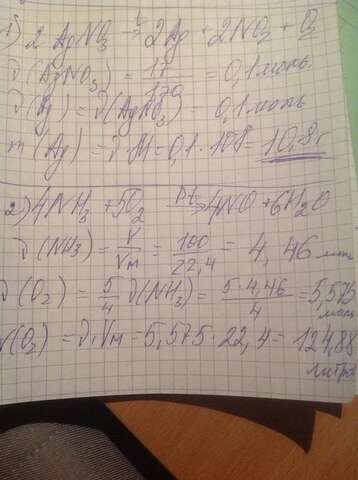 1) 2AgNO₃ t→ 2Ag + 2NO₂ + O₂
ν(AgNO₃) = 17/170 = 0,1 моль.
ν(Ag) = ν(AgNO₃) = 0,1 моль
m(Ag) = ν·M = 0,1·108 = 10,8 г
2) 4NH₃ + 5O₂ Pt→ 4NO + 6H₂O
ν(NH₃) = V/Vм = 100/22,4 = 4,46 моль
ν(O₂) = 5/4 ν(NH₃) = 5·4,46/4 = 5,575 моль
V(O₂) = ν·Vм = 5,575·22,4 = 124,88 литров